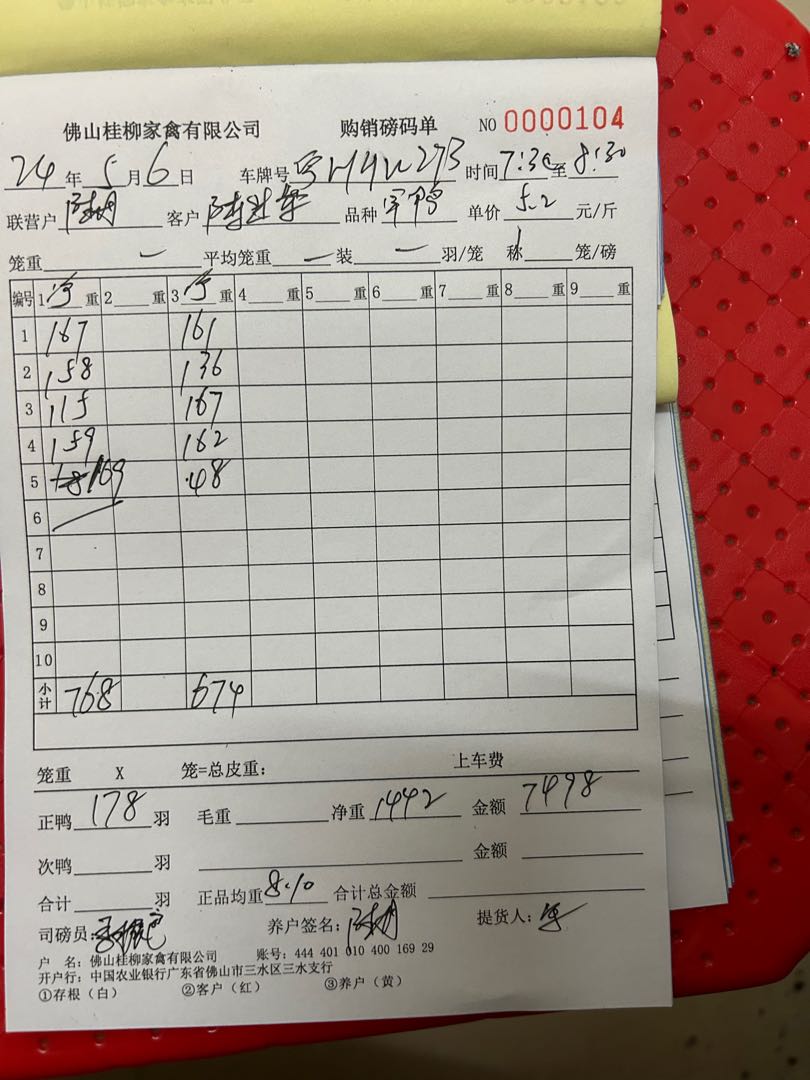 佛山桂柳家禽有限公司 购销磅码单 NO 0000104
24年5月6日 车牌号 时间7:30至8:30
联营户 客户 品种 单价5.2元/斤
笼重 一 平均笼重 一 装 一 羽/笼 称 1 笼/磅
编号 1净重 2 重 3净重 4 重 5 重 6 重 7 重 8 重 9 重
1 167 161
2 158 136
3 115 167
4 159 162
5 169 48
6
7
8
9
10
小计 768 674
笼重 X 笼=总皮重: 上车费
正鸭178羽 毛重 净重1442 金额7498
次鸭 羽 金额
合计 羽 正品均重8.10 合计总金额
司磅员: 养户签名: 提货人:
户 名: 佛山桂柳家禽有限公司 账号: 444 401 010 400 169 29
开户行: 中国农业银行广东省佛山市三水区三水支行
①存根(白) ②客户(红) ③养户(黄)